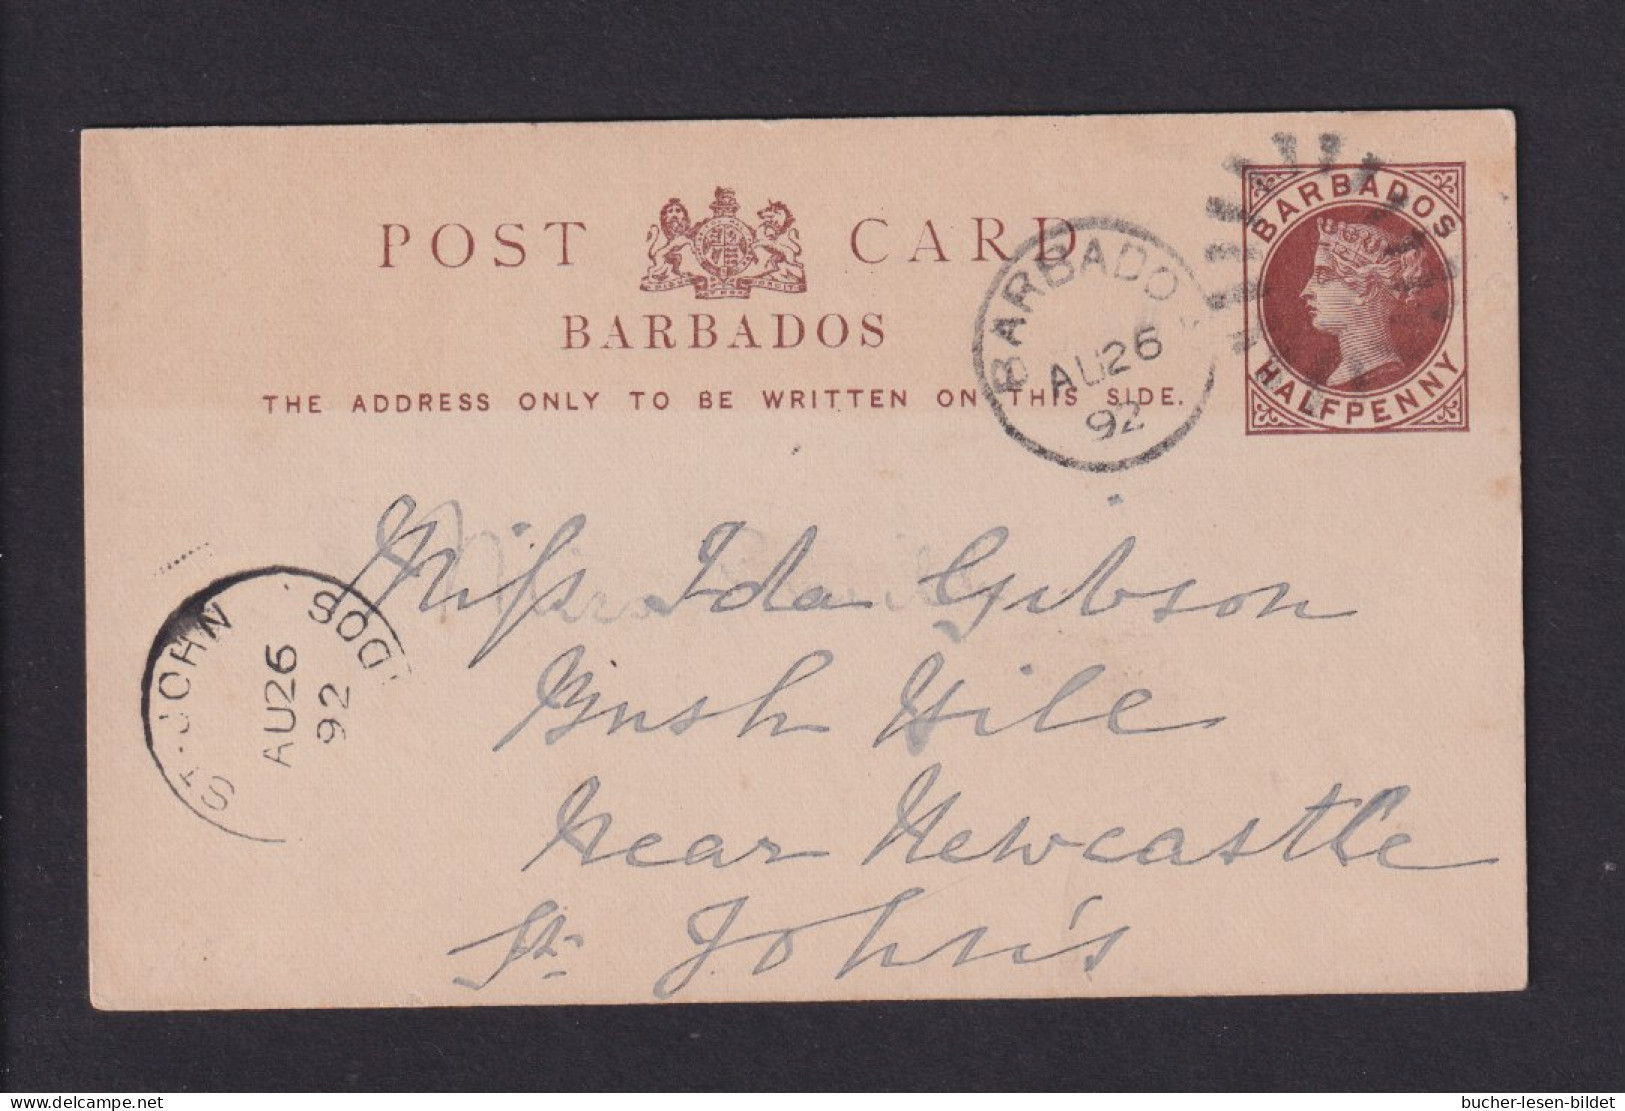 POST CARD
BARBADOS
THE ADDRESS ONLY TO BE WRITTEN ON THIS SIDE.
BARBADOS
HALFPENNY
BARBADO
AU 26
92
Miss Ida Gibson
Bush Hill
Near Newcastle
St. John's
ST. JOHN
DOS
AU 26
92
delcampe.net
bucher-lesen-bildet